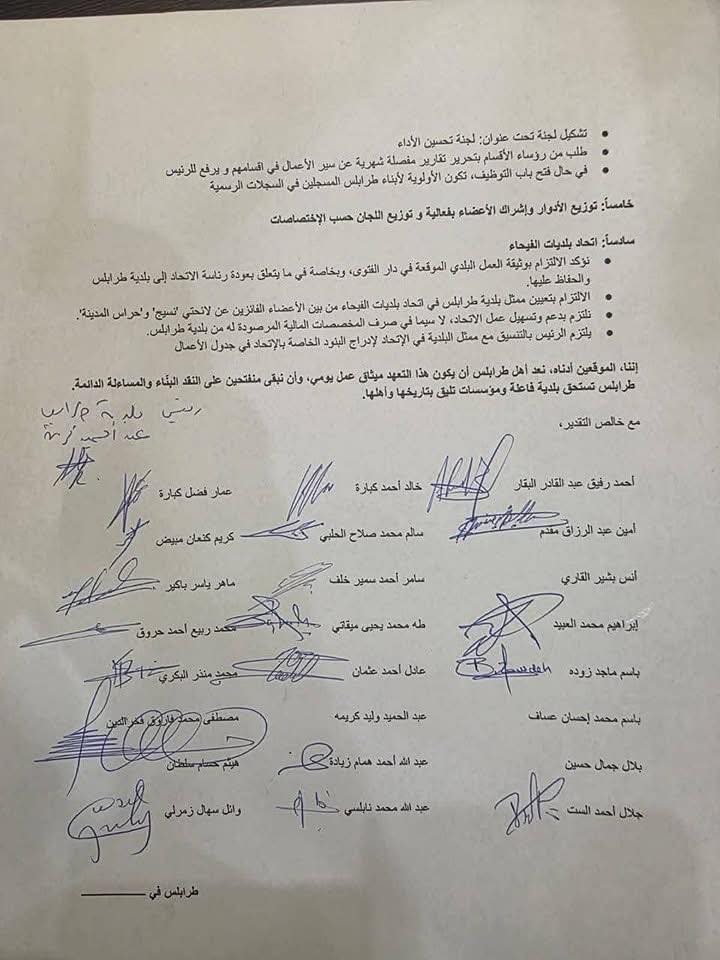 • تشكيل لجنة تحت عنوان: لجنة تحسين الأداء
• طلب من رؤساء الأقسام بتحرير تقارير مفصلة شهرية عن سير الأعمال في اقسامهم و يرفع للرئيس
• في حال فتح باب التوظيف، تكون الأولوية لأبناء طرابلس المسجلين في السجلات الرسمية
خامساً: توزيع الأدوار وإشراك الأعضاء بفعالية و توزيع اللجان حسب الإختصاصات
سادساً: اتحاد بلديات الفيحاء
• نؤكد الالتزام بوثيقة العمل البلدي الموقعة في دار الفتوى، وبخاصة في ما يتعلق بعودة رئاسة الاتحاد إلى بلدية طرابلس
والحفاظ عليها.
• الالتزام بتعيين ممثل بلدية طرابلس في اتحاد بلديات الفيحاء من بين الأعضاء الفائزين عن لائحتي 'نسيج' و'حراس المدينة'.
• نلتزم بدعم وتسهيل عمل الاتحاد، لا سيما في صرف المخصصات المالية المرصودة له من بلدية طرابلس.
• يلتزم الرئيس بالتنسيق مع ممثل البلدية في الإتحاد لإدراج البنود الخاصة بالإتحاد في جدول الأعمال
إننا، الموقعين أدناه، نعد أهل طرابلس أن يكون هذا التعهد ميثاق عمل يومي، وأن نبقى منفتحين على النقد البنّاء والمساءلة الدائمة.
طرابلس تستحق بلدية فاعلة ومؤسسات تليق بتاريخها وأهلها.
بلدية
مع خالص التقدير،
أحمد رفيق عبد القادر البقار خالد أحمد كبارة عمار فضل كبارة
أمين عبد الرزاق مقدم سالم محمد صلاح الحلبي كريم كنعان مبيض
أنس بشير القاري سامر أحمد سمير خلف ماهر ياسر باكير
إبراهيم محمد العبيد طه محمد يحيى ميقاتي محمد ربيع أحمد حروق
باسم ماجد زوده عادل أحمد عثمان محمد منذر البكري
باسم محمد إحسان عساف عبد الحميد وليد كريمه مصطفى محمد فاروق فخرالدين
بلال جمال حسين عبد الله أحمد همام زيادة هيثم حسام سلطان
جلال أحمد الست عبد الله محمد نابلسي وائل سهال زمرلي
طرابلس في ________